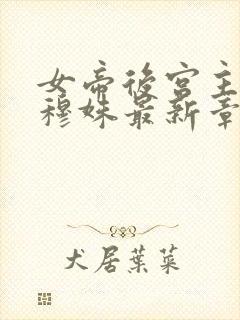 女帝後宮主
穆姝最新章
犬居葉菜